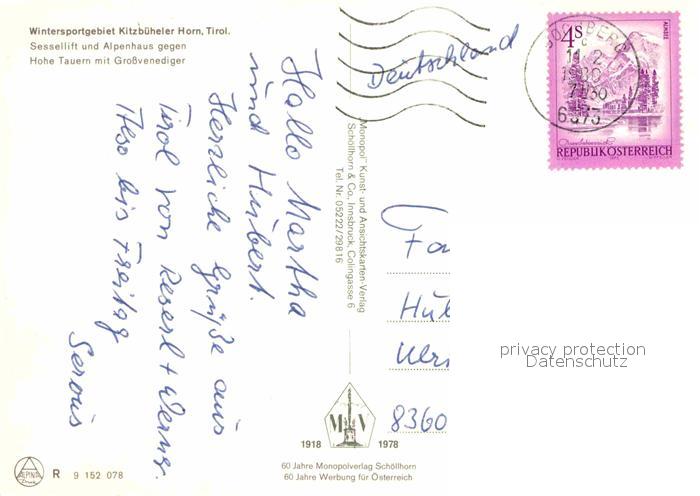 Wintersportgebiet Kitzbüheler Horn, Tirol.
Sessellift und Alpenhaus gegen
Hohe Tauern mit Großvenediger
Hallo Martha
und Hubert.
Herzliche Grüße aus
Tirol von Reserl + Werner.
Also bis Freitag
Servus
"Monopol" Kunst- und Ansichtskarten-Verlag
Schöllhorn & Co., Innsbruck, Colingasse 6
Tel. Nr. 05222/29816
Deutschland
4S
ALMSEE
REPUBLIK ÖSTERREICH
1980
Fa
Hub
8360
privacy protection
Datenschutz
M V
1918 1978
60 Jahre Monopolverlag Schöllhorn
60 Jahre Werbung für Österreich
ALPINA
R 9 152 078